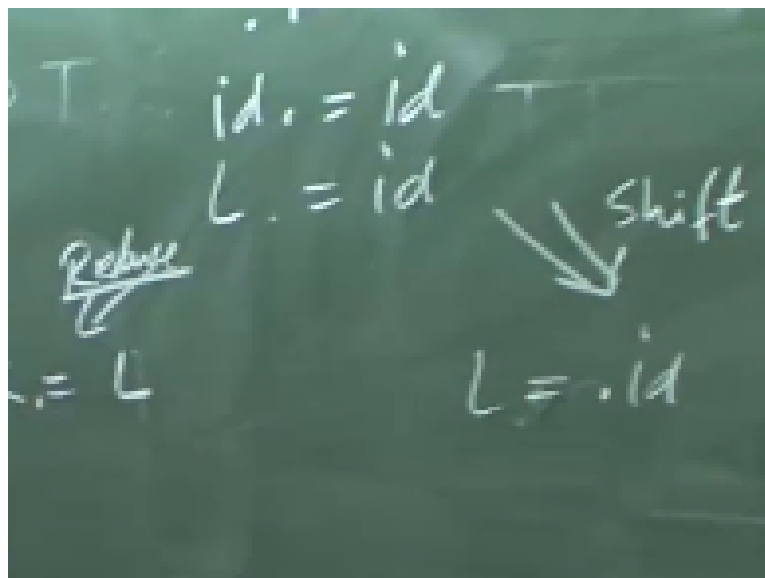 T...
id . = id
L . = id
Shift
Reduce
. = L
L = . id